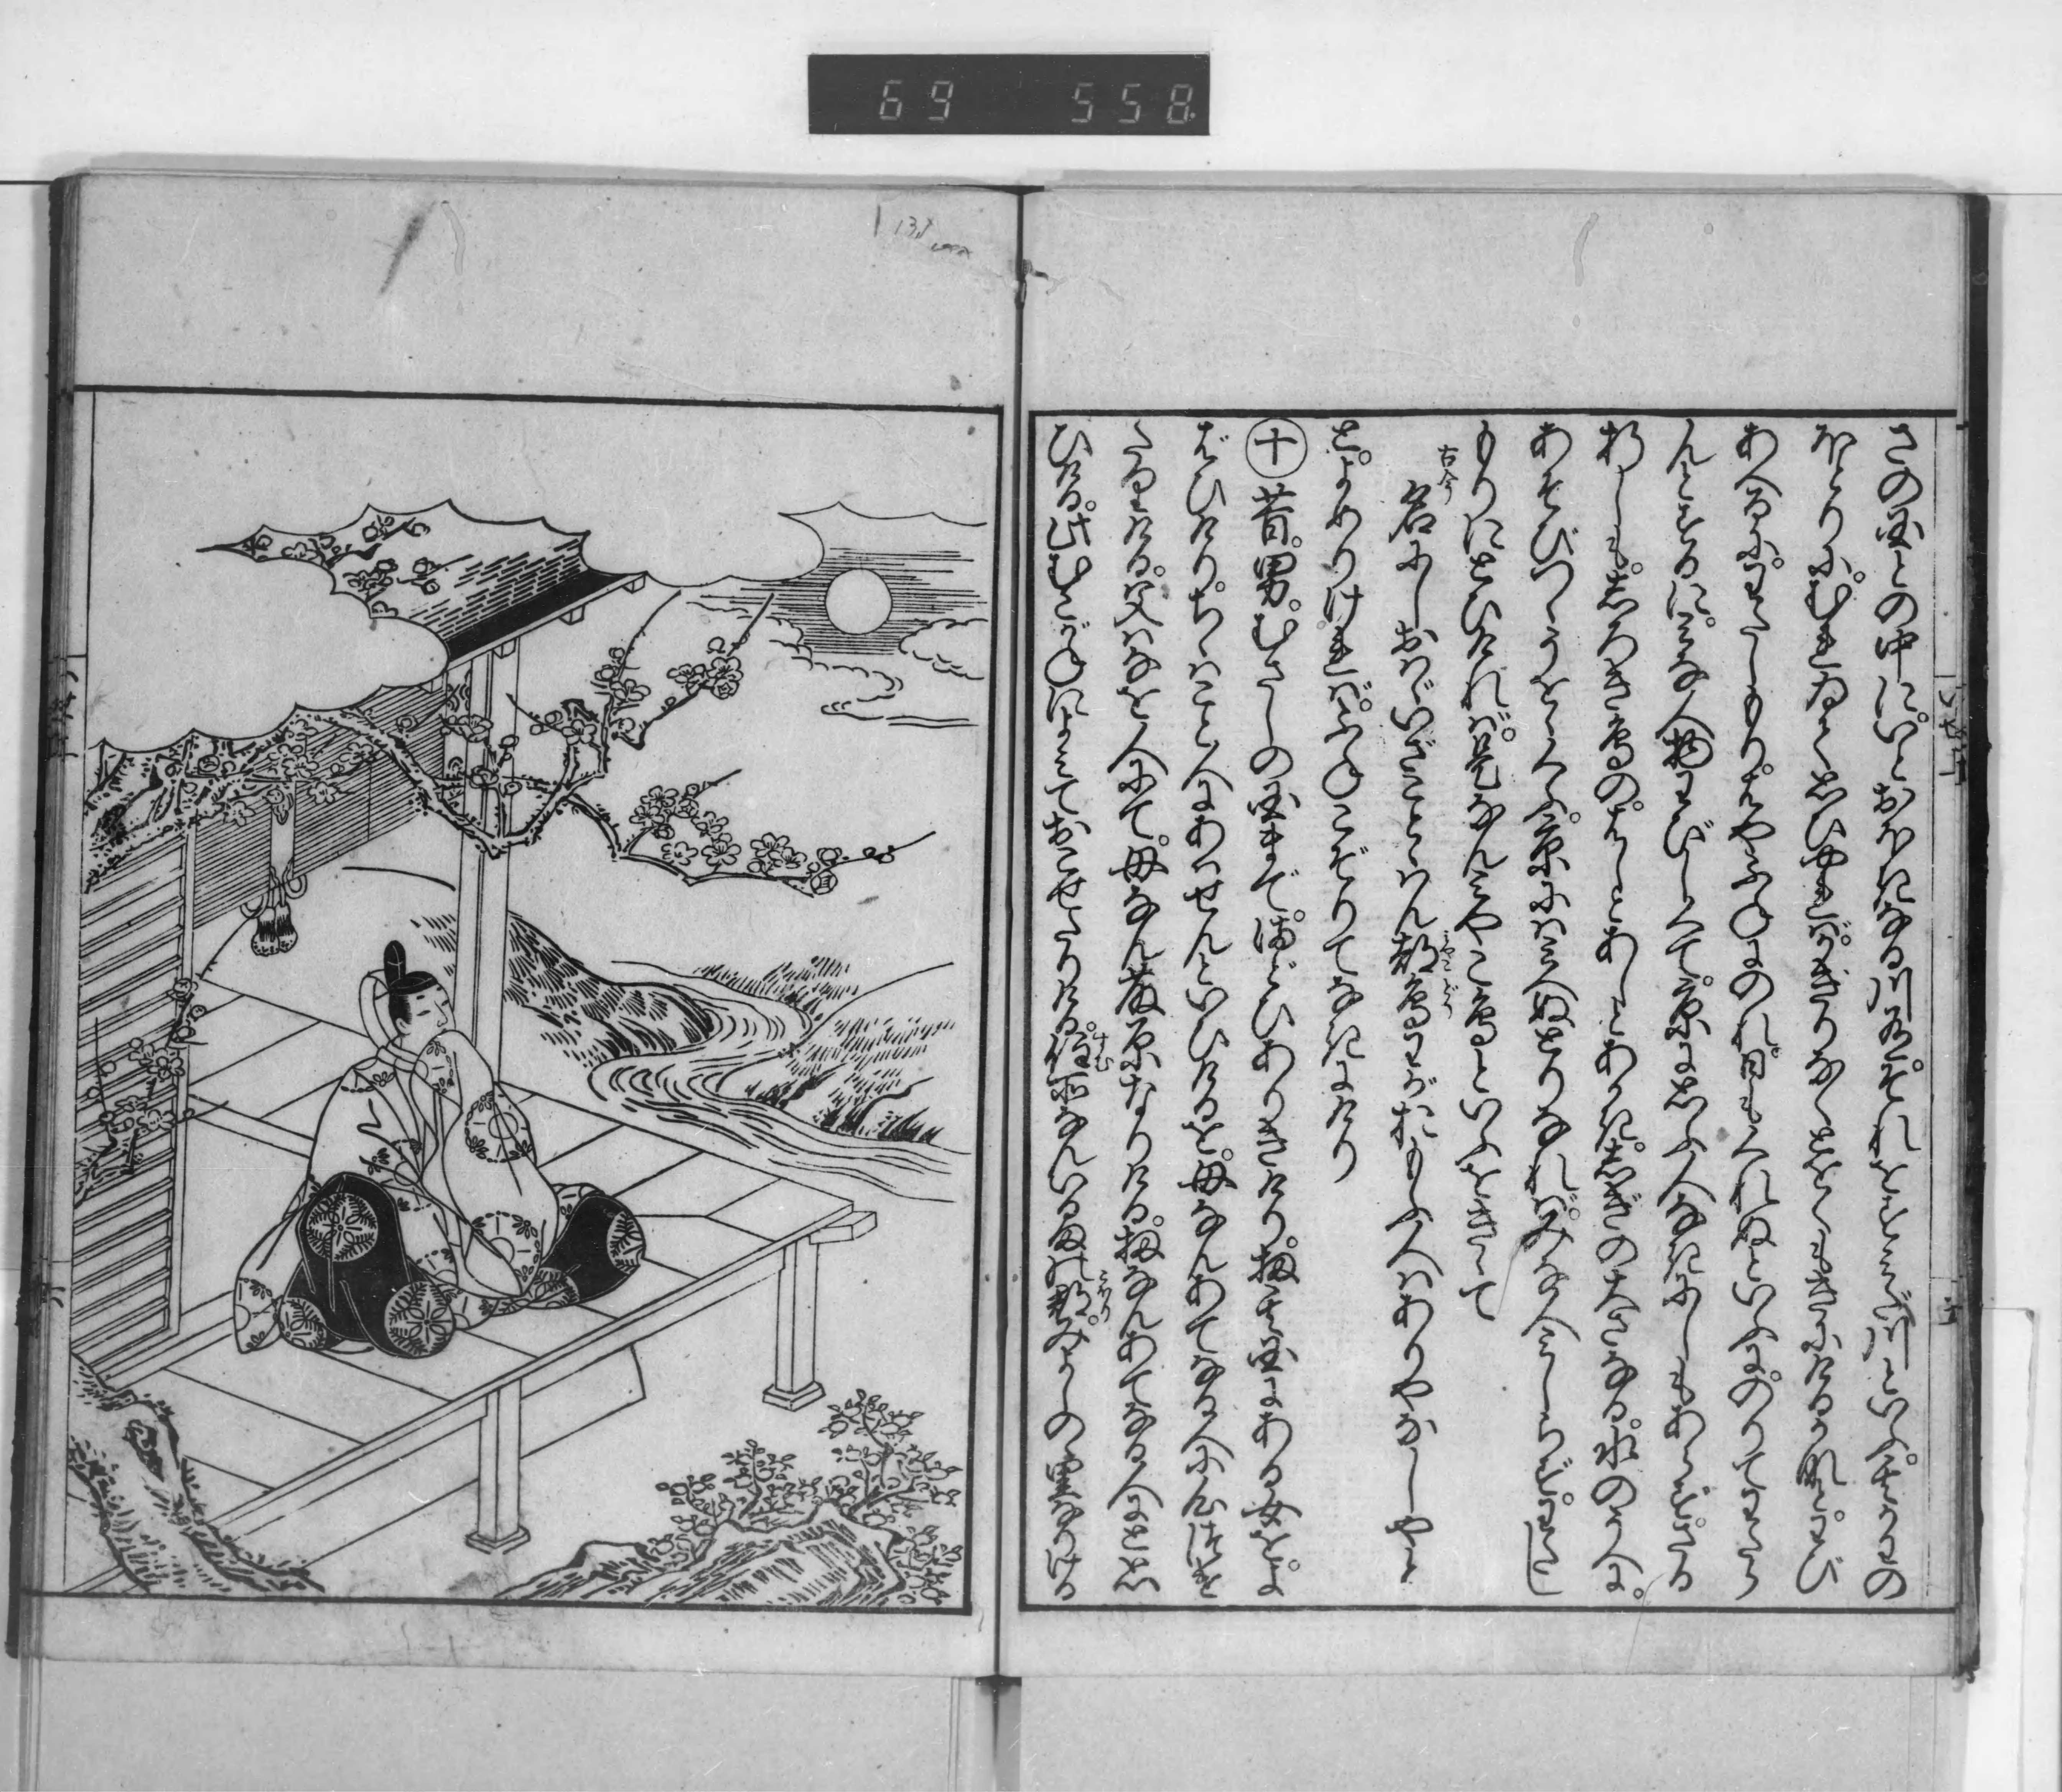 69 558
さの国との中に。いとおほきなる川有。それをすみだ川といふ。其かはの
ほとりに。むれゐておもひやれば。かぎりなくとをくもきにけるかな。とわび
あへるに。わたしもり。はやふねにのれ。日もくれぬといふに。のりてわたら
んとするに。みな人物わびしくて。京におもふ人なきにしもあらず。さる
おりしも。しろき鳥の。はしとあしとあかき。しぎの大さなる。水のうへに。
あそびつゝうをゝくふ。京にはみえぬとりなれば。みな人みしらず。わたし
もりにとひければ。是なんみやこ鳥といふをきゝて
古今
名にしおはゞいざことゝはん都鳥わがおもふ人はありやなしやと
みやこどり
とよめりければ。ふねこぞりてなきにけり
十 昔。男。むさしの国まで。まどひありきけり。扨其国にある女を。よ
ばひけり。ちゝはこと人にあはせんといひけるを。母なんあてなる人に心つけ
たりける。父はなを人にて。母なん藤原なりける。扨なんあてなる人にと思
ひける。此むこがねによみておこせたりける。住所なんいるまの郡。みよしの里なりける
すむ
こほり